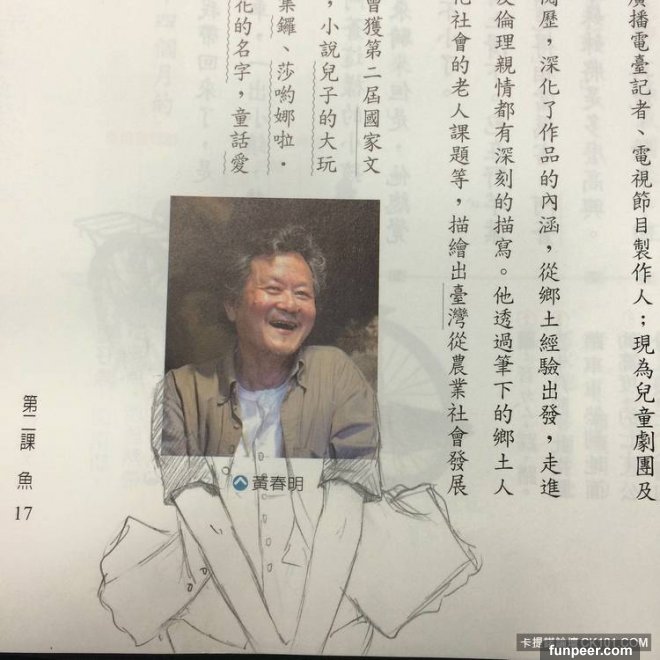 廣播電臺記者、電視節目製作人；現為兒童劇團及
閱歷，深化了作品的內涵，從鄉土經驗出發，走進
及倫理親情都有深刻的描寫。他透過筆下的鄉土人
化社會的老人課題等，描繪出臺灣從農業社會發展
曾獲第二屆國家文
，小說兒子的大玩
集鑼、莎喲娜啦．
花的名字，童話愛
黃春明
第二課 魚 17
卡提諾論壇 CK101.COM
funpeer.com